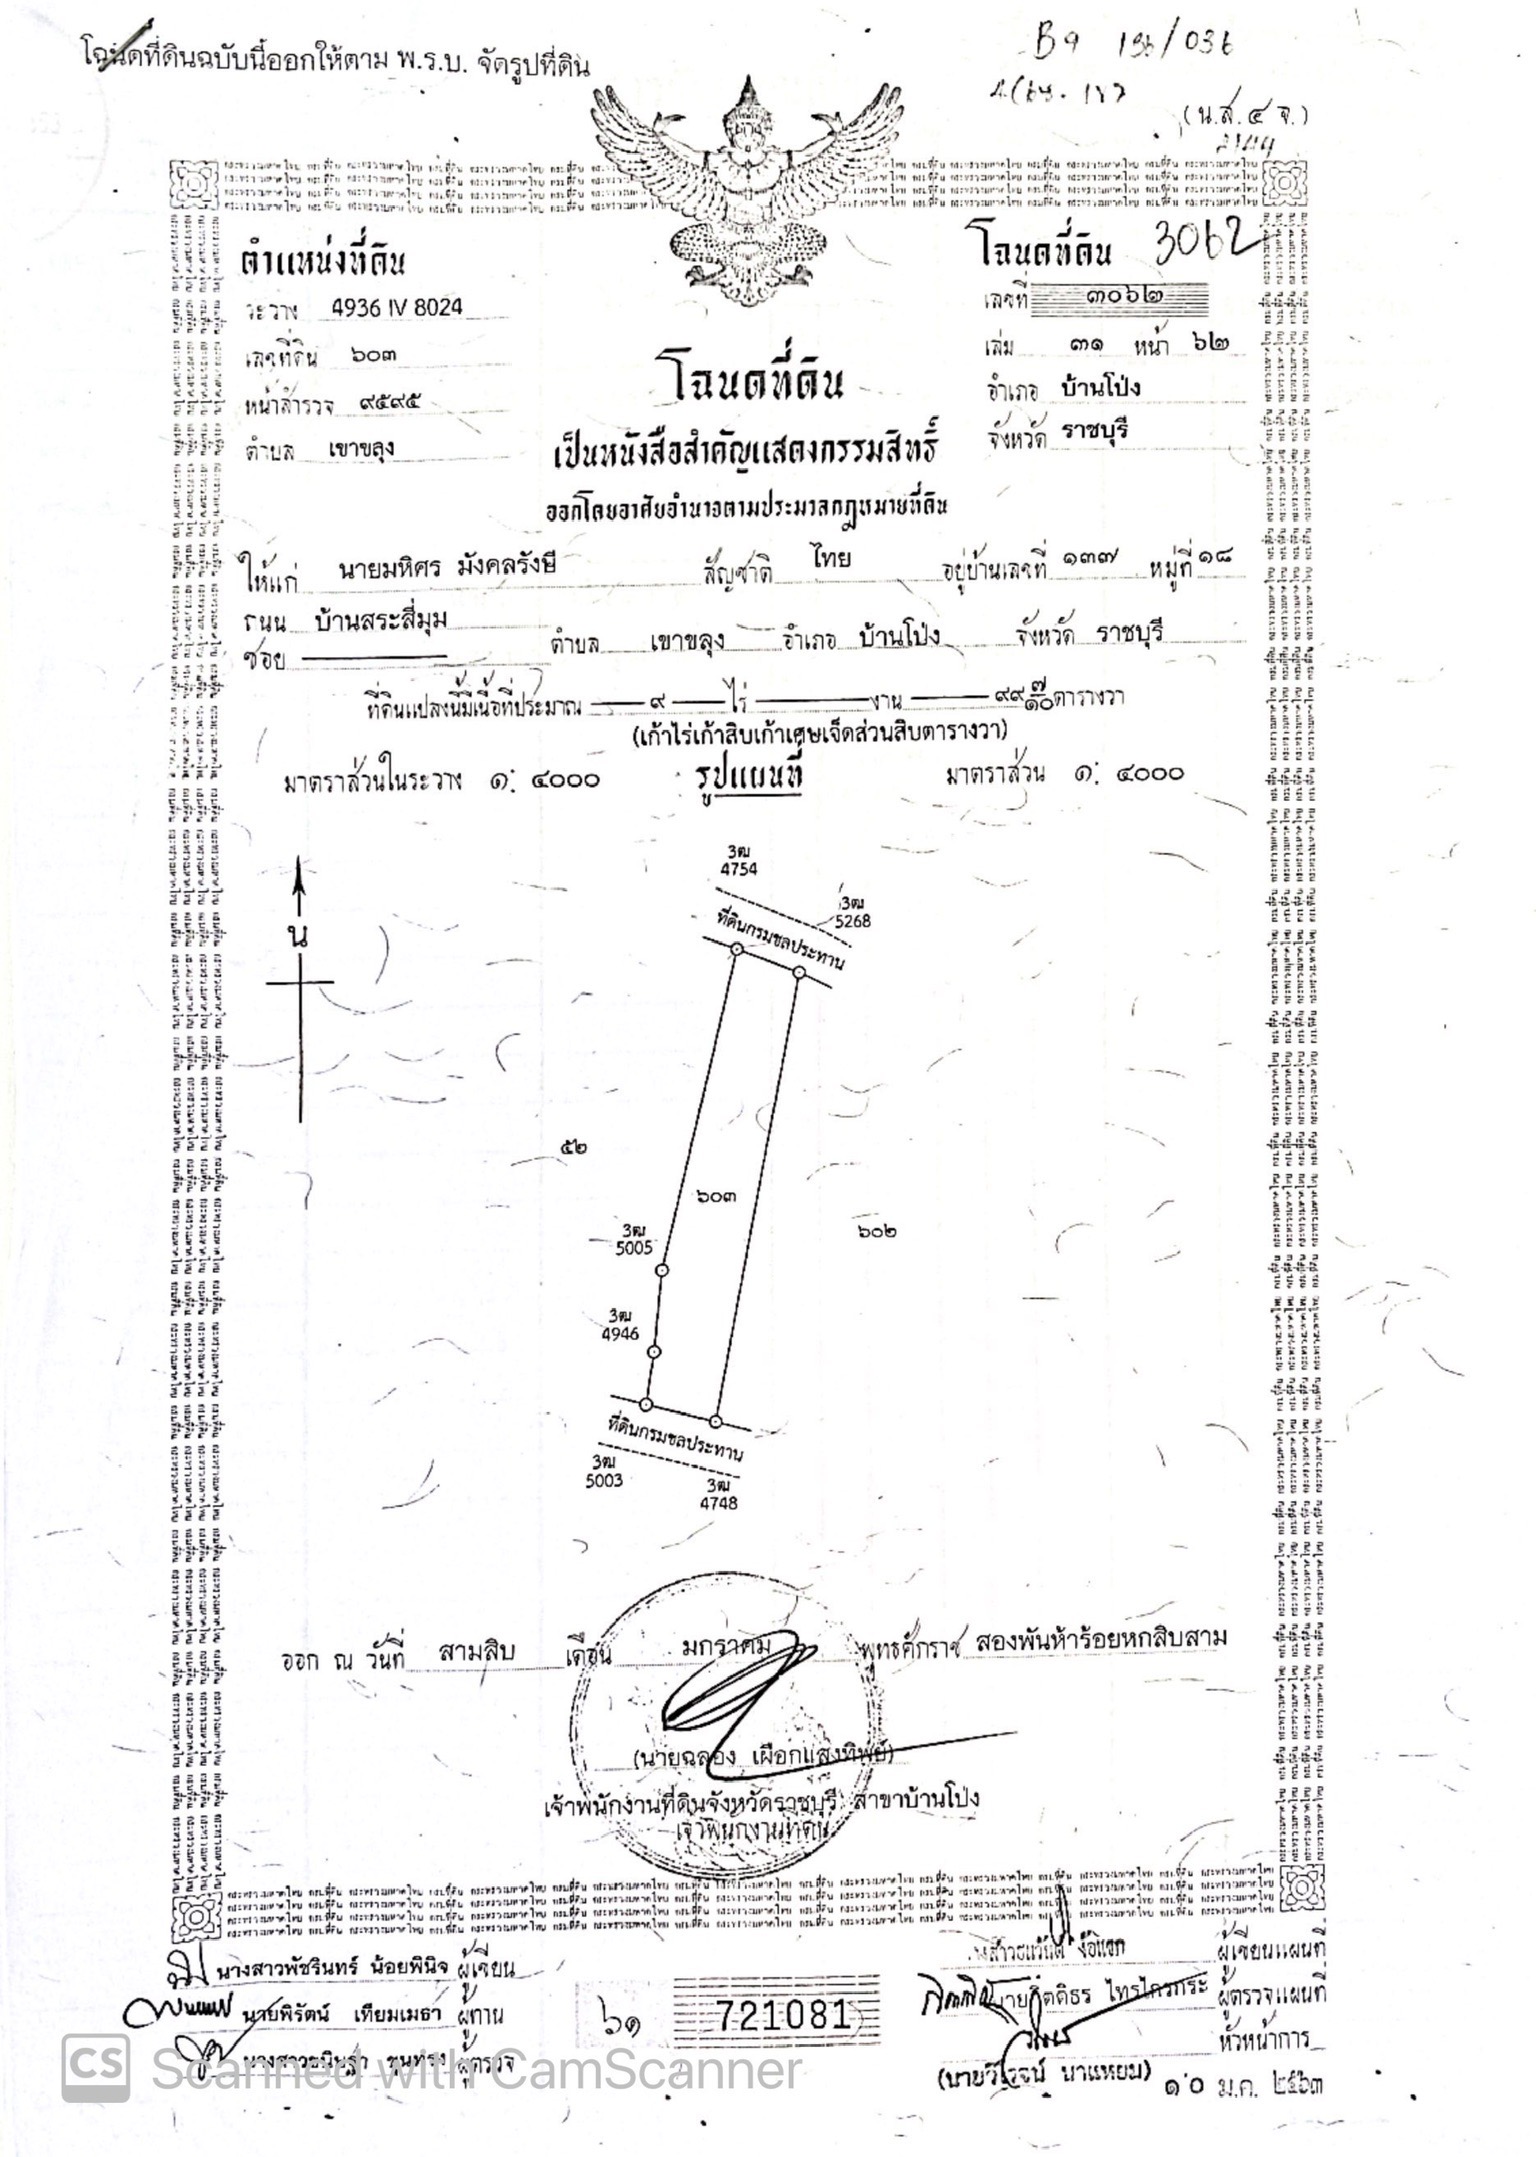 โฉนดที่ดินฉบับนี้ออกให้ตาม พ.ร.บ. จัดรูปที่ดิน
(น.ส. ๔ จ.)
ตำแหน่งที่ดิน
ระวาง 4936 IV 8024
เลขที่ดิน ๖๐๓
หน้าสำรวจ ๙๕๙๕
ตำบล เขาขลุง
โฉนดที่ดิน 3062
เลขที่ ๓๐๖๒
เล่ม ๓๑ หน้า ๖๒
อำเภอ บ้านโป่ง
จังหวัด ราชบุรี
โฉนดที่ดิน
เป็นหนังสือสำคัญแสดงกรรมสิทธิ์
ออกโดยอาศัยอำนาจตามประมวลกฎหมายที่ดิน
ให้แก่ นายมหิศร มังคลรังษี สัญชาติ ไทย อยู่บ้านเลขที่ ๑๓๗ หมู่ที่ ๑๘
ถนน บ้านสระสี่มุม
ซอย ตำบล เขาขลุง อำเภอ บ้านโป่ง จังหวัด ราชบุรี
ที่ดินแปลงนี้มีเนื้อที่ประมาณ — ๙ — ไร่ — งาน — ๙๙ ๗/๑๐ ตารางวา
(เก้าไร่เก้าสิบเก้าเศษเจ็ดส่วนสิบตารางวา)
มาตราส่วนในระวาง ๑: ๔๐๐๐ รูปแผนที่ มาตราส่วน ๑: ๔๐๐๐
3ฒ
4754
3ฒ
5268
ที่ดินกรมชลประทาน
น
๕๒
๖๐๓
๖๐๒
3ฒ
5005
3ฒ
4946
ที่ดินกรมชลประทาน
3ฒ
5003
3ฒ
4748
ออก ณ วันที่ สามสิบ เดือน มกราคม พุทธศักราช สองพันห้าร้อยหกสิบสาม
(นายฉลอง เผือกแสงทิพย์)
เจ้าพนักงานที่ดินจังหวัดราชบุรี สาขาบ้านโป่ง
เจ้าพนักงานที่ดิน
นางสาวพัชรินทร์ น้อยพินิจ ผู้เขียน
นายพิรัตน์ เทียมเมธา ผู้ทาน
ผู้ตรวจ
๖๑ 721081
ผู้เขียนแผนที่
ผู้ตรวจแผนที่
หัวหน้าการ
(นายวิโรจน์ นาแหยม) ๑๐ ม.ค. ๒๕๖๓
CS Scanned with CamScanner